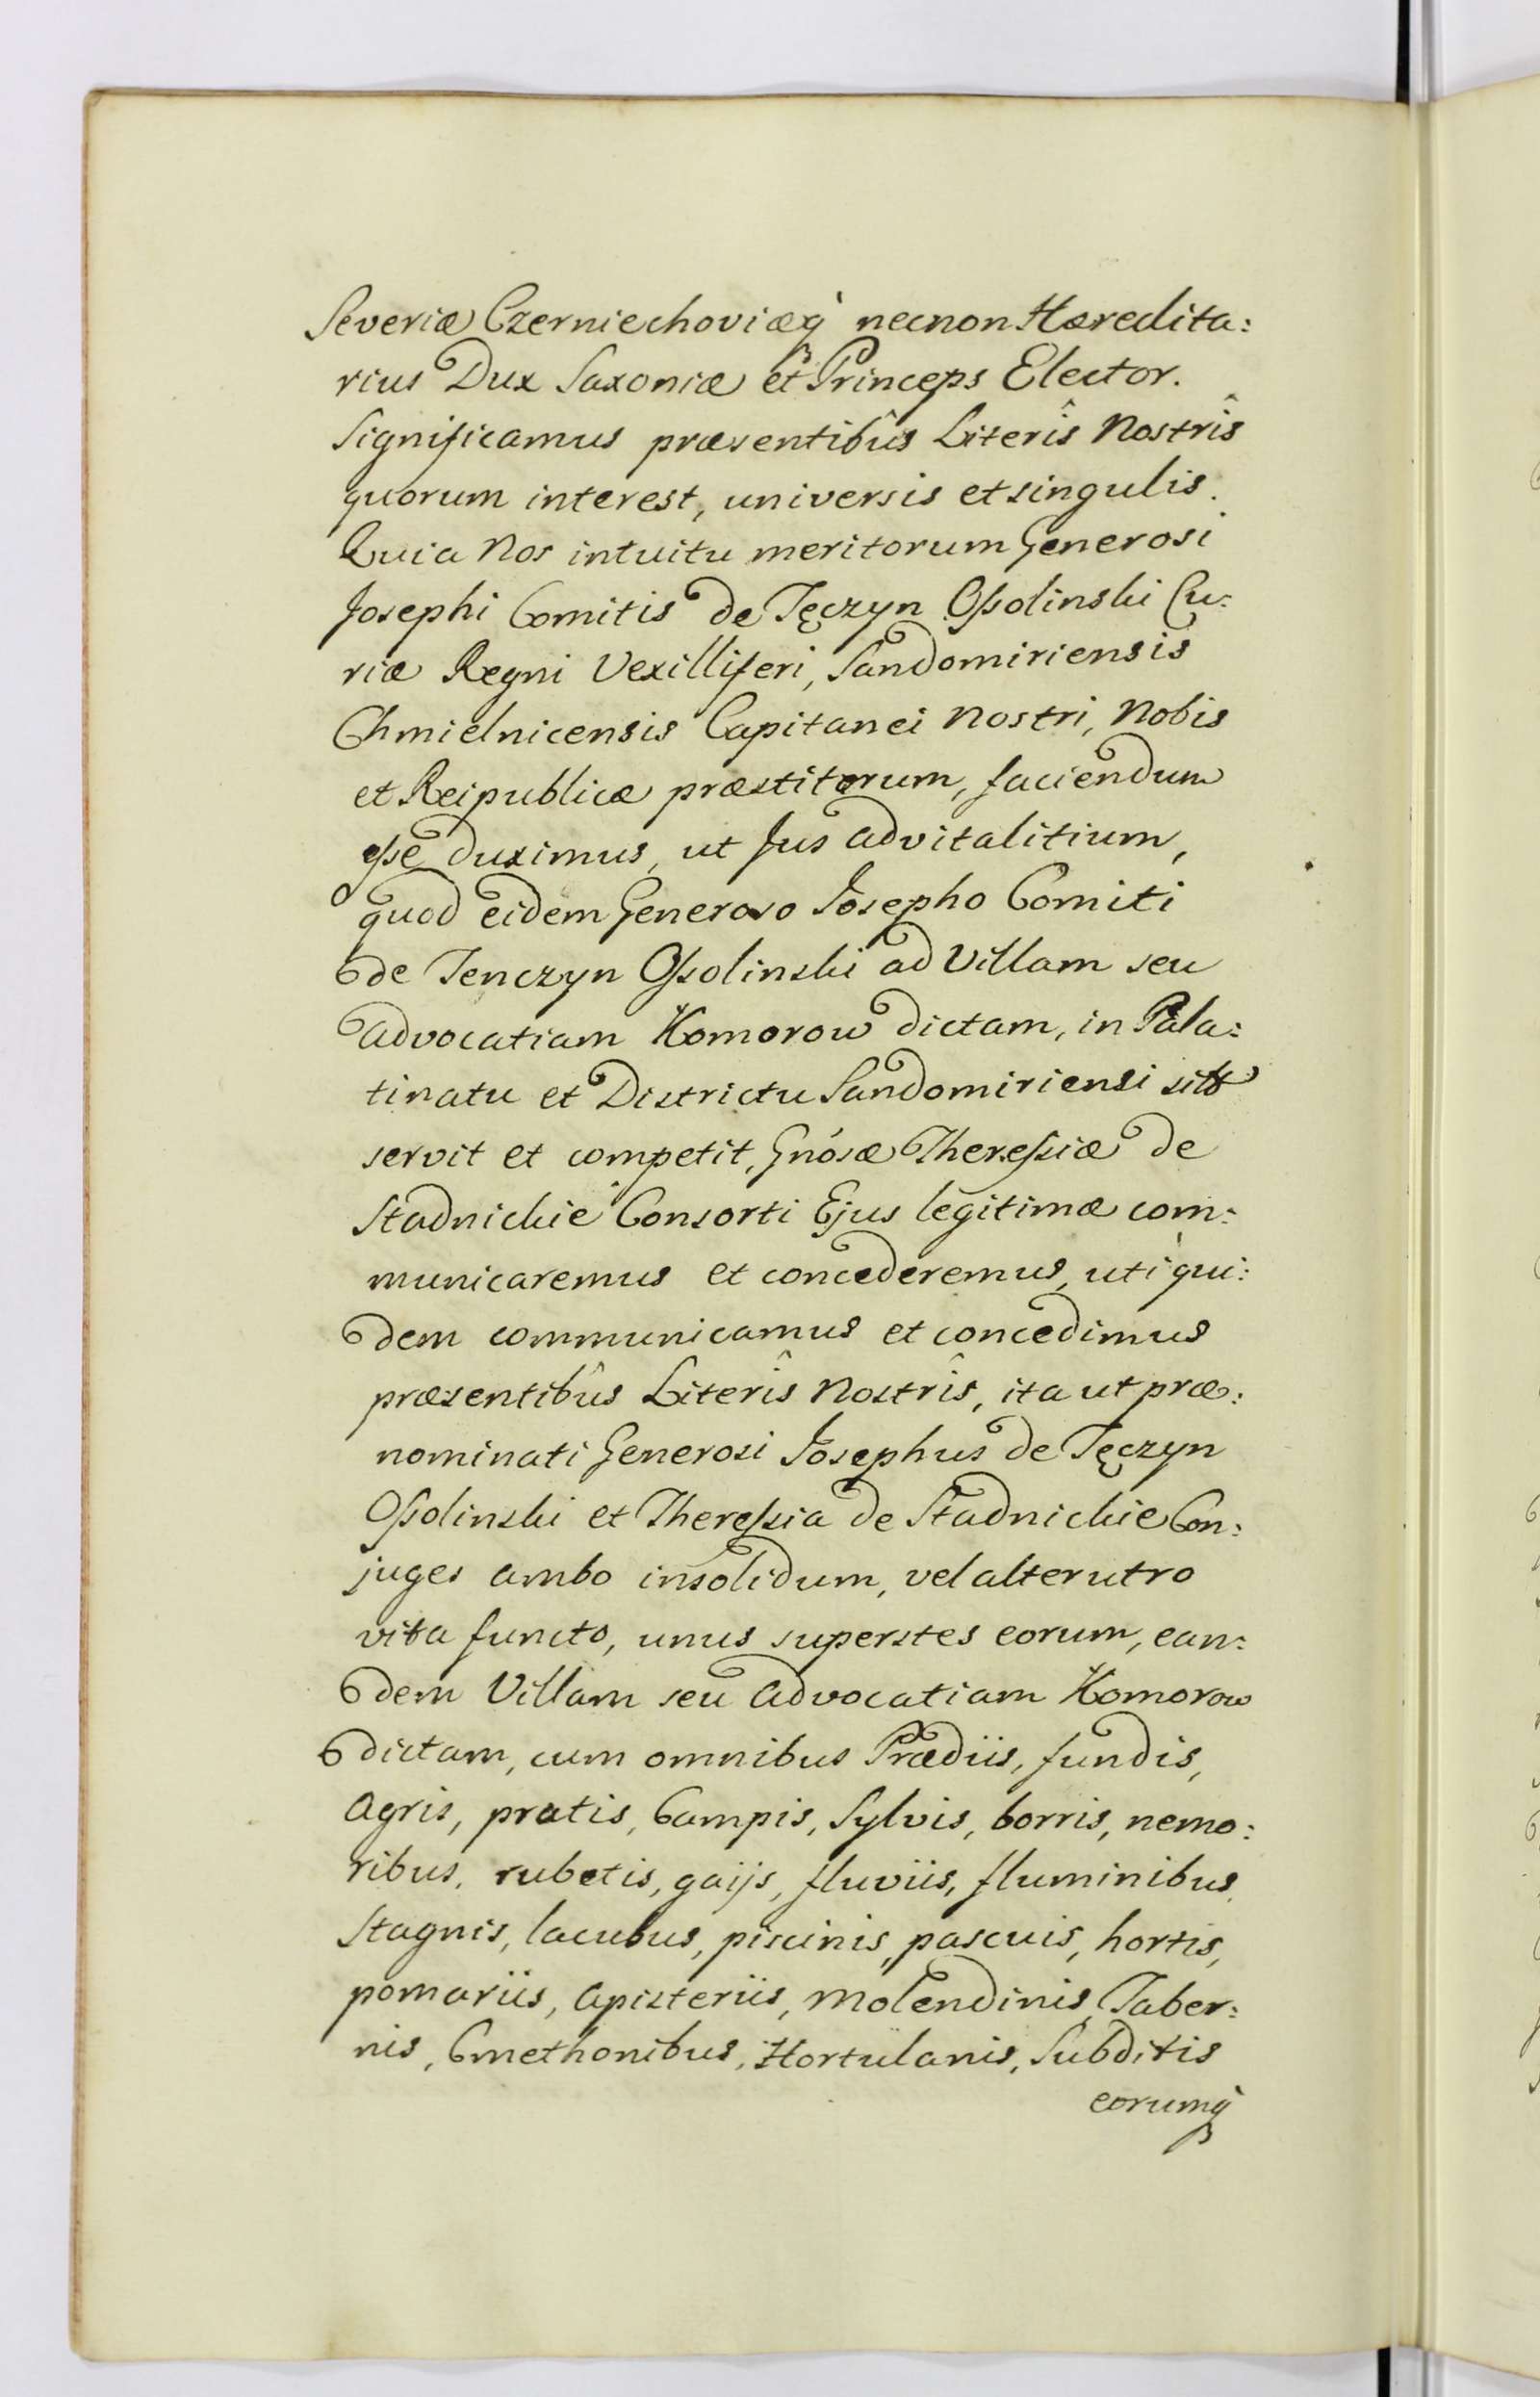 Severiæ Czerniechoviæq̀ necnon Hæredita:
rius Dux Saxoniæ et Princeps Elector.
Significamus præsentibûs Literîs Nostrîs
quorum interest, universis et singulis.
Quia Nos intuitu meritorum Generosi
Josephi Comitis de Tęczyn Ossolinski Cu:
riæ Regni Vexilliferi, Sandomiriensis
Chmielnicensis Capitanei Nostri, Nobis
et Reipublicæ præstitorum, faciendum
esse duximus, ut Jus advitalitium,
quod eidem Generoso Josepho Comiti
de Tenczyn Ossolinski ad Villam seu
Advocatiam Komorow dictam, in Pala:
tinatu et Districtu Sandomiriensi
servit et competit, Gnósæ Theressiæ de
Stadnickie Consorti Ejus legitimæ com:
municaremus et concederemus, uti qui:
dem communicamus et concedimus
præsentibûs Literîs Nostrîs, ita ut præ:
nominati Generosi Josephus de Tęczyn
Ossolinski et Theressia de Stadnickie Con:
juges ambo insolidum, vel alterutro
vita functo, unus superstes eorum, ean:
dem Villam seu Advocatiam Komorow
dictam, cum omnibus Prædiis, fundis,
Agris, pratis, Campis, Sylvis, borris, nemo:
ribus, rubetis, gaijs, fluviis, fluminibus,
Stagnis, lacubus, piscinis, pascuis, hortis,
pomariis, Apisteriis, Molendinis, Taber:
nis, Cmethonibus, Hortulanis, Subditis
eorumq̀